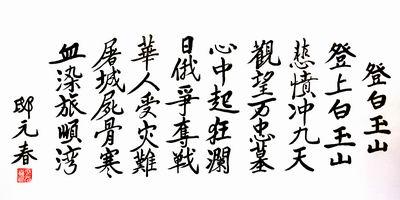 登白玉山
登上白玉山
悲憤冲九天
觀望万忠墓
心中起狂瀾
日俄爭奪戰
華人受灾難
屠城屍骨寒
血染旅順湾
邸元春